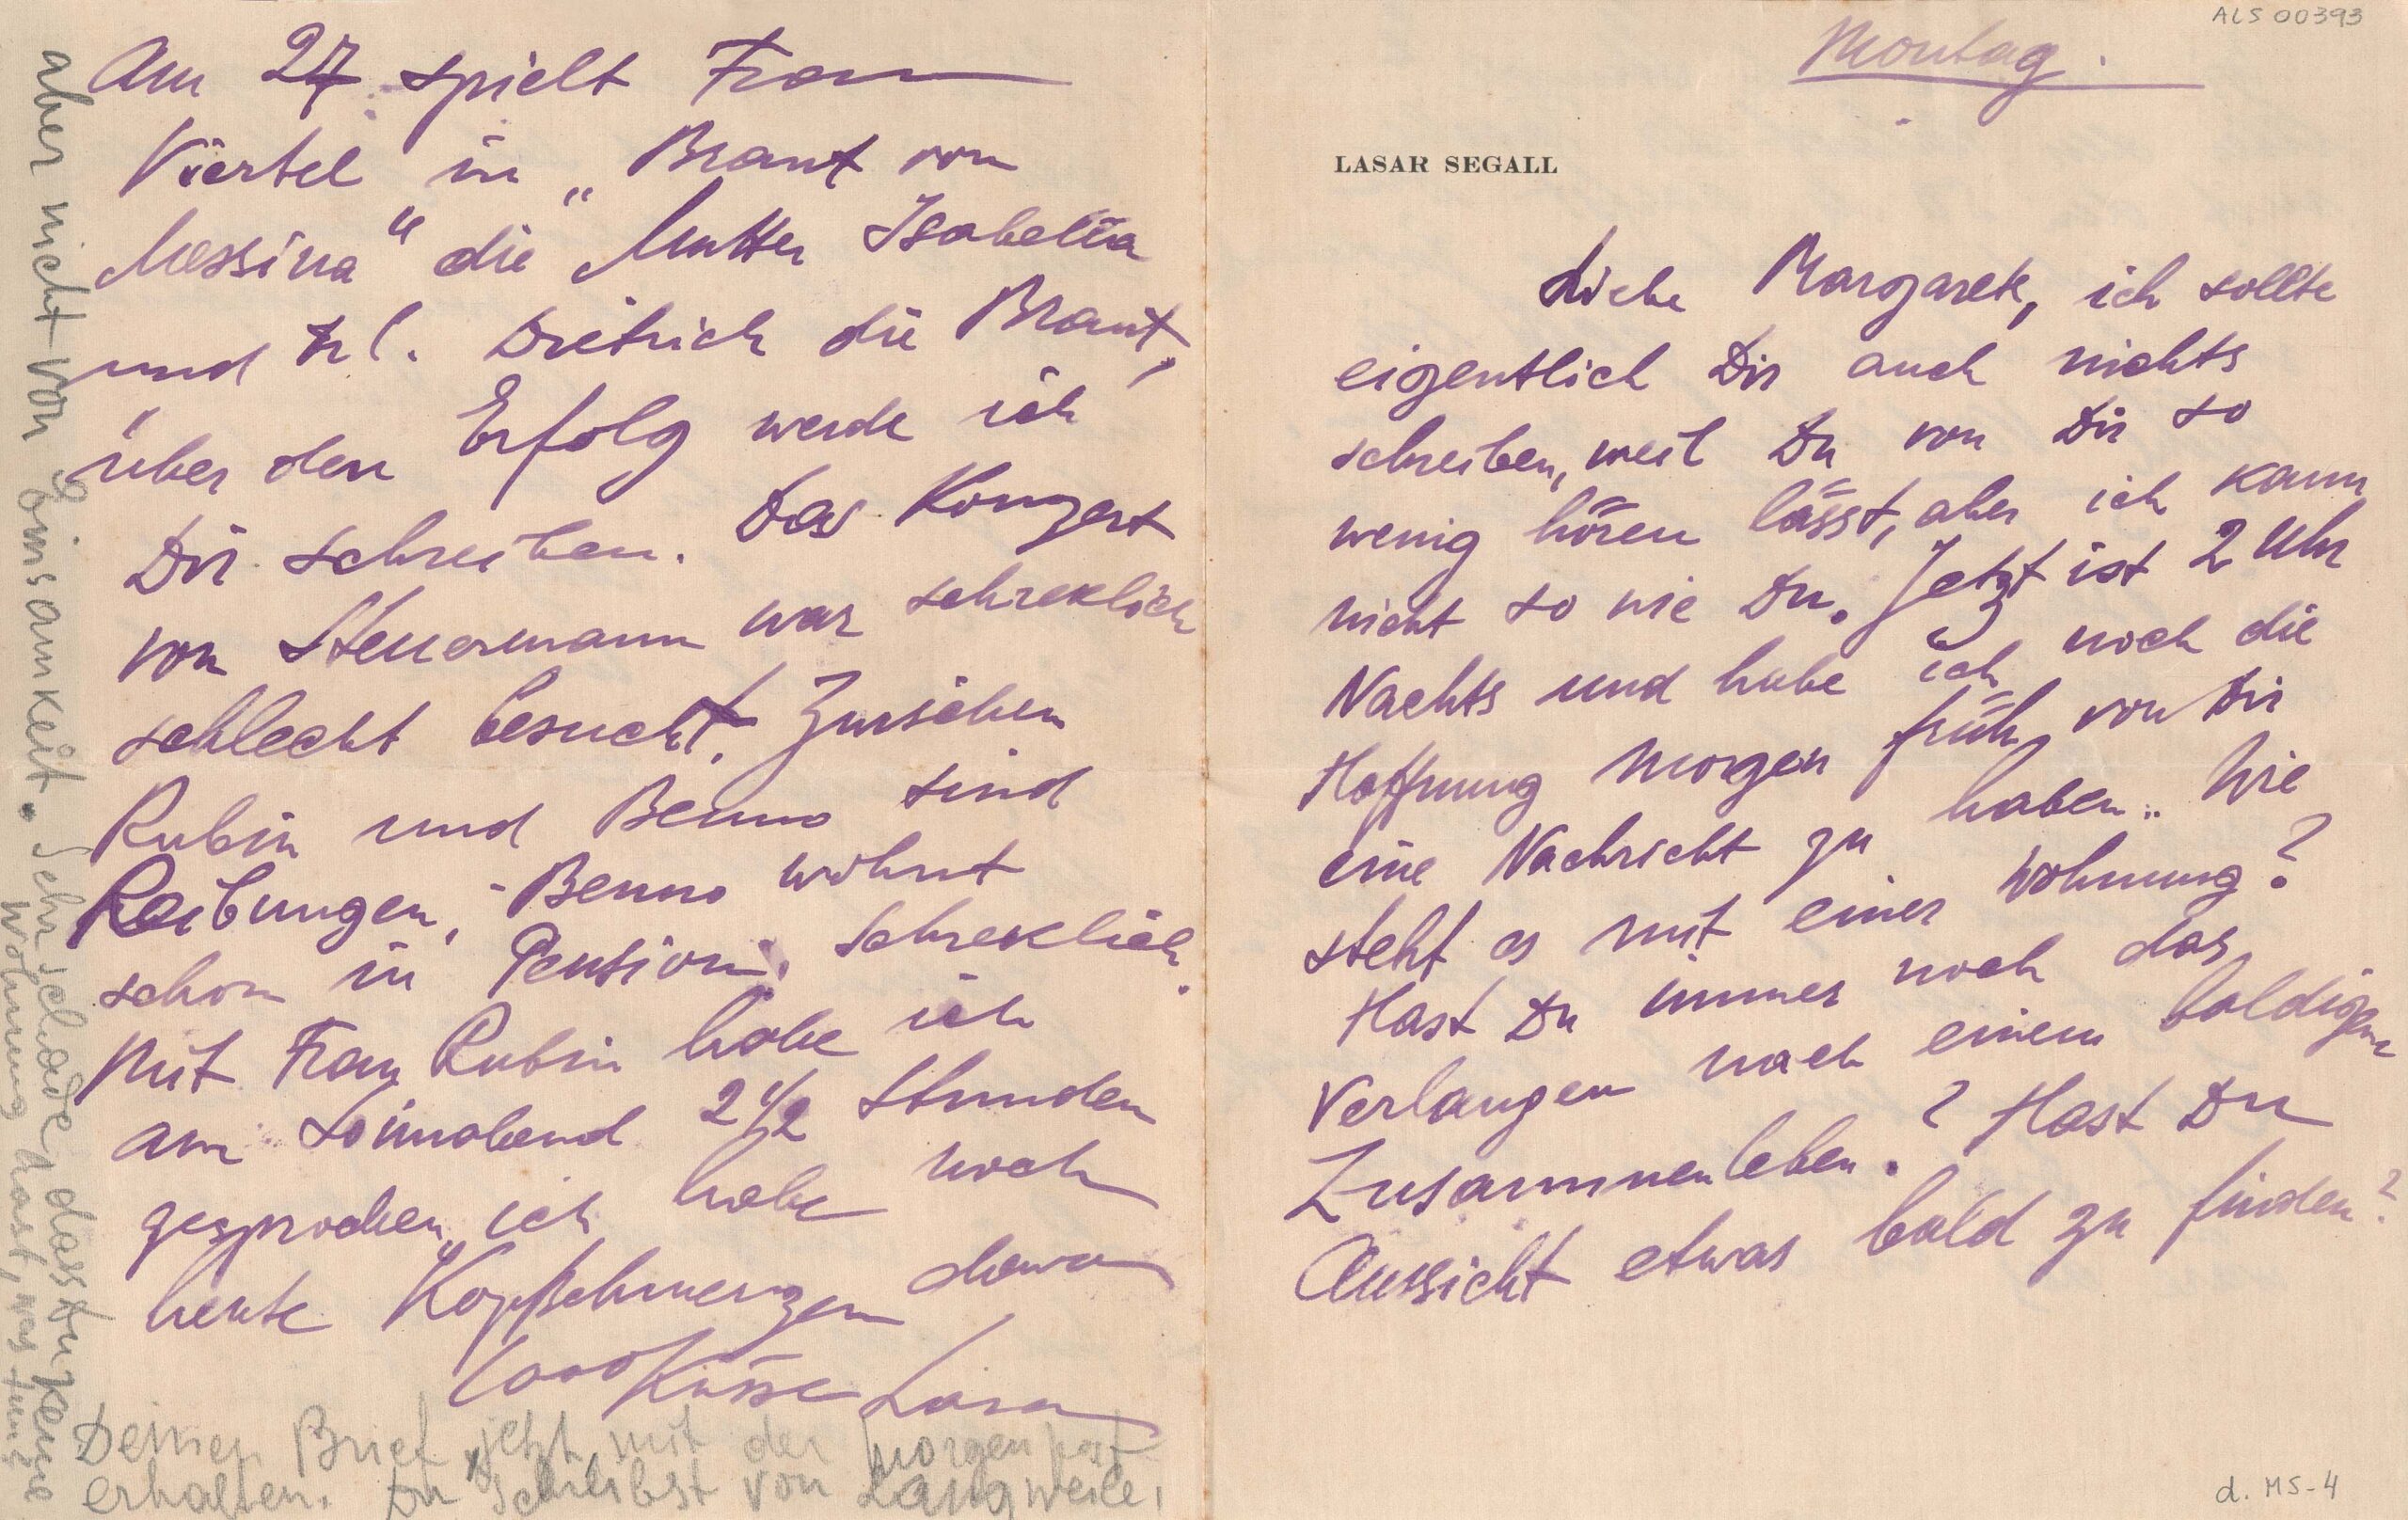 ALS 00393
Montag.
LASAR SEGALL
Liebe Margarete, ich sollte
eigentlich Dir auch nichts
schreiben, weil Du von Dir so
wenig hören lässt, aber ich kann
nicht so wie Du. Jetzt ist 2 Uhr
Nachts und habe ich noch die
Hoffnung morgen früh von Dir
eine Nachricht zu haben.. Wie
steht es mit einer Wohnung?
Hast Du immer noch das
Verlangen nach einem baldigen
Zusammenleben.? Hast Du
Aussicht etwas bald zu finden?
d. MS-4
Am 27. spielt Frau
Viertel in „Braut von
Messina“ die Mutter Isabella
und Frl. Dietrich die Braut,
über den Erfolg werde ich
Dir schreiben. Das Konzert
von Steuermann war schreklich
schlecht besucht. Zwischen
Rubin und Benno sind
Reibungen, Benno wohnt
schon in Pension. Schreklich.
Mit Frau Rubin habe ich
am Sonnabend 2 1/2 Stunden
gesprochen, ich habe noch
heute Kopfschmerzen davon
1000 Küsse Lasar
Deinen Brief jetzt mit der Morgenpost
erhalten. Du schreibst von Langweile,
aber nicht von Einsamkeit. Sehr schade, dass Du keine
Wohnung hast, was